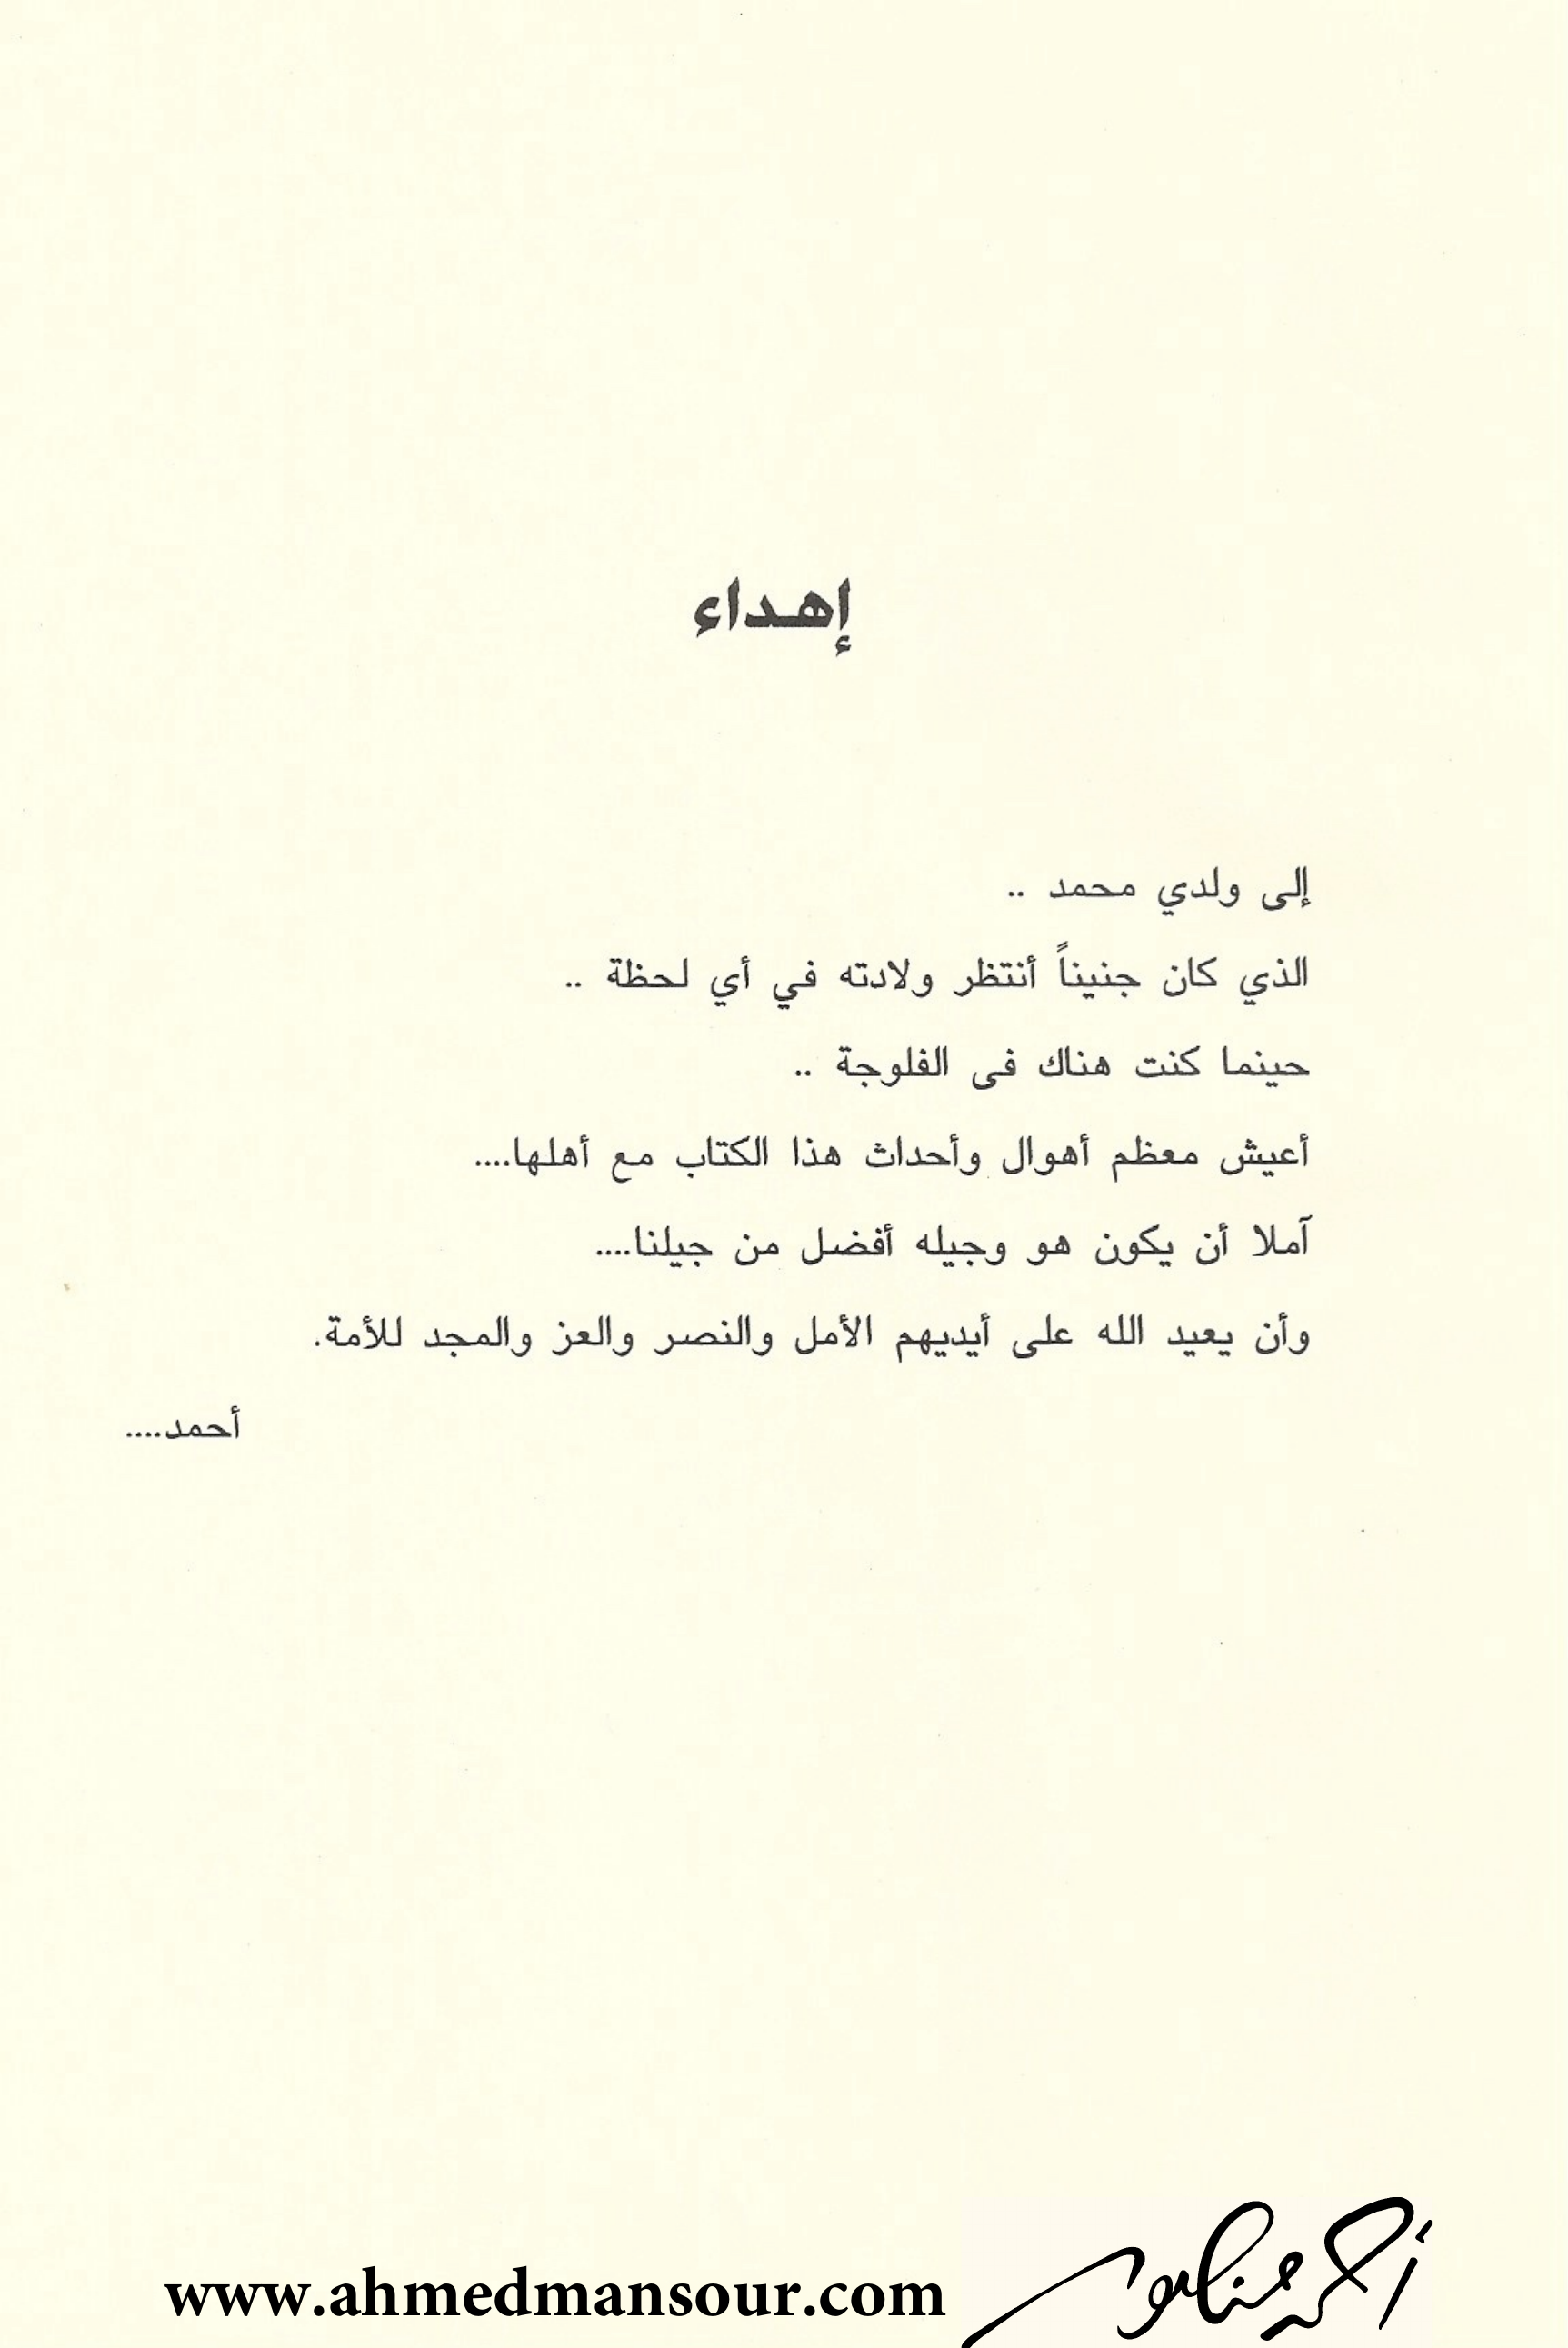 إهداء
إلى ولدي محمد ..
الذي كان جنيناً أنتظر ولادته في أي لحظة ..
حينما كنت هناك فى الفلوجة ..
أعيش معظم أهوال وأحداث هذا الكتاب مع أهلها....
آملا أن يكون هو وجيله أفضل من جيلنا....
وأن يعيد الله على أيديهم الأمل والنصر والعز والمجد للأمة.
أحمد....
أحمد منصور
www.ahmedmansour.com